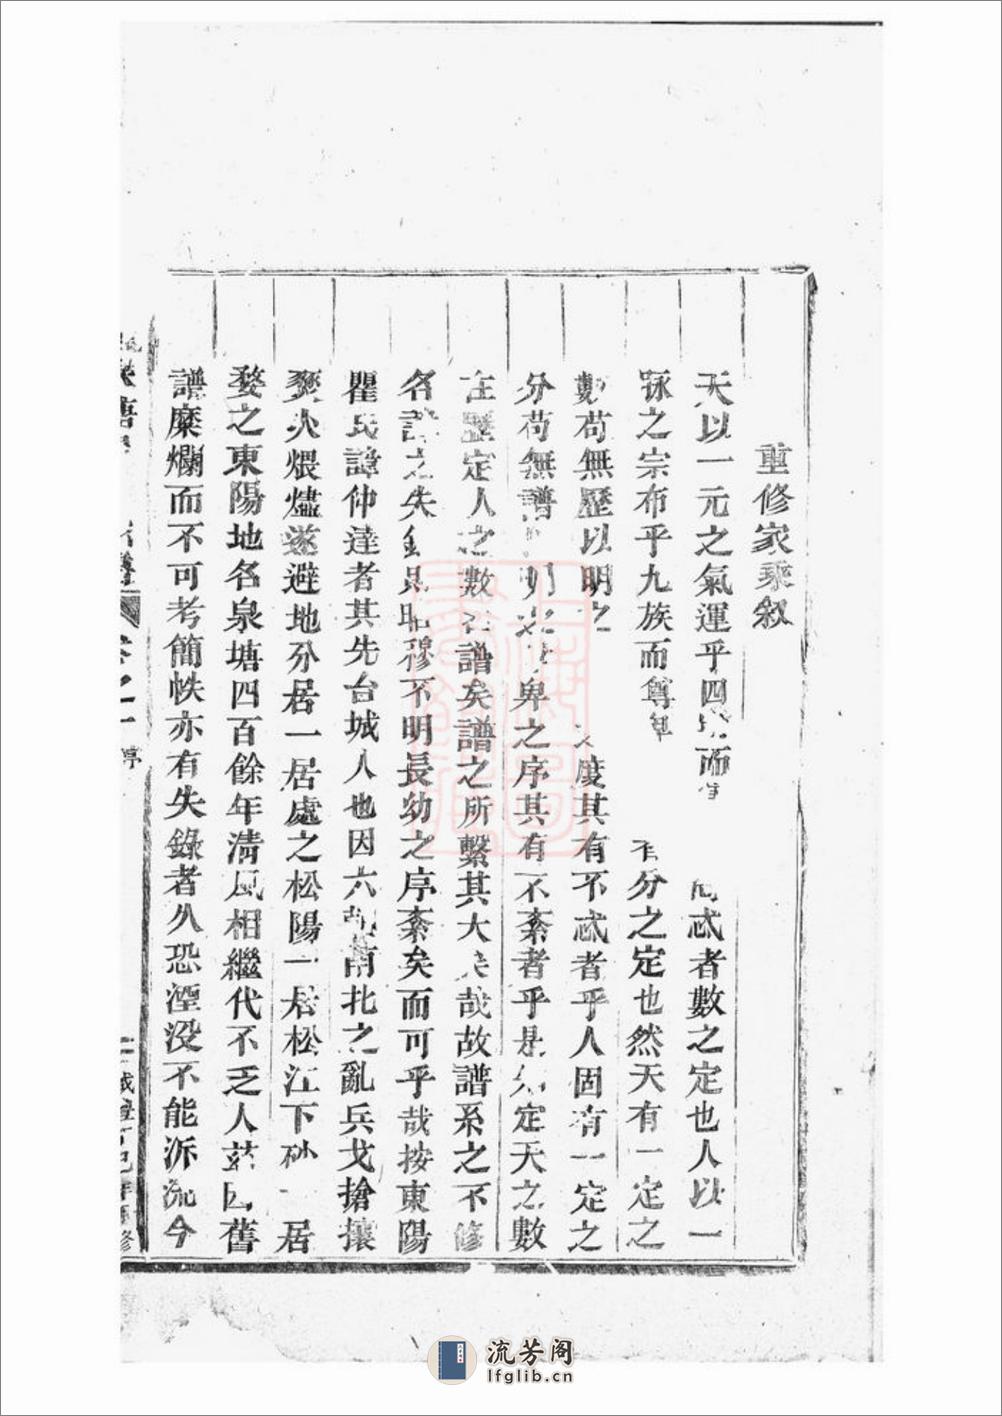 重修家乘叙
天以一元之氣運乎四時而忒者數之定也人以一
脉之宗布乎九族而尊卑有分之定也然天有一定之
數苟無歷以明之度其有不忒者乎人固有一定之
分苟無譜卑之序其有不紊者乎是知定天之數
在歷定人之數在譜矣譜之所繫其大矣哉故譜系之不修
名諱之失錄昭穆不明長幼之序紊矣而可乎哉按東陽
瞿氏諱仲達者其先台城人也因六朝南北之亂兵戈搶攘
煙燼遂避地分居一居處之松陽一居松江下砂一居
婺之東陽地名泉塘四百餘年清風相繼代不乏人茲因舊
譜糜爛而不可考簡帙亦有失錄者久恐湮没不能泝流今
流芳阁
lfglib.cn